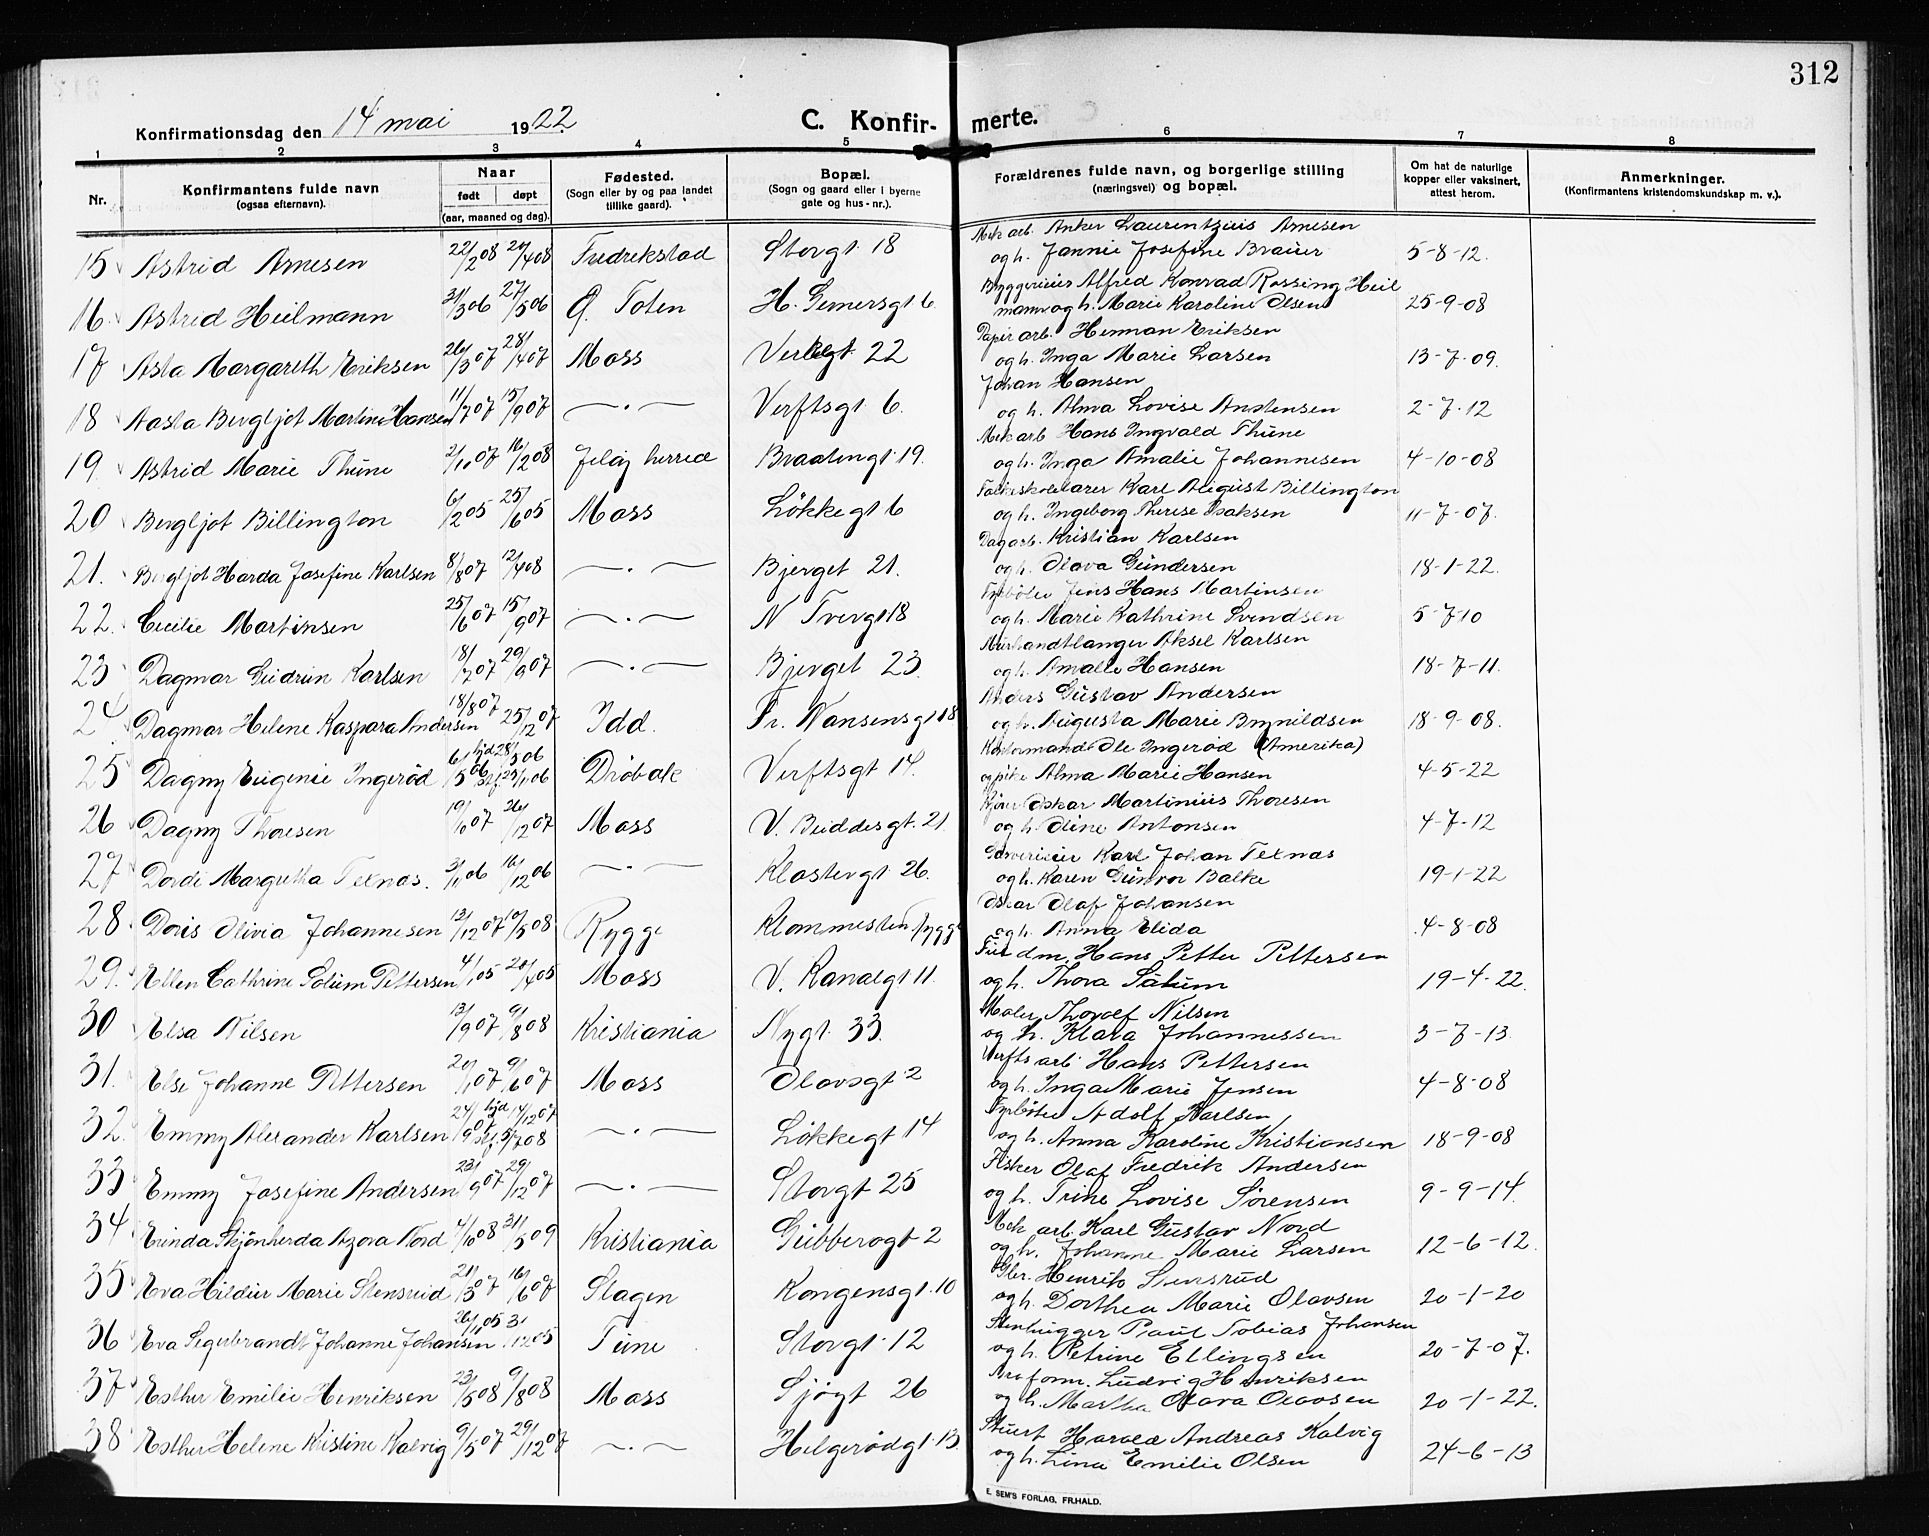 312
Konfirmationsdag den 14 mai 1922
C. Konfir- merte.
1 2 3 4 5 6 7 8
Nr.
Konfirmantens fulde navn
(ogsaa efternavn).
Naar
født døpt
(aar, maaned og dag).
Fødested.
(Sogn eller by og paa landet
tillike gaard).
Bopæl.
(Sogn og gaard eller i byerne
gate og hus-nr.).
Forældrenes fulde navn, og borgerlige stilling
(næringsvei) og bopæl.
Om hat de naturlige
kopper eller vaksinert,
attest herom.
Anmerkninger.
(Konfirmantens kristendomskundskap m. v.).
Mek arb. Anker Laurentzius Arnesen
15 Astrid Arnesen 22/2 08 20/4 08 Fredrekstad Storgt 18 og h. Jannie Josefine Brauer 5-8-12.
Alfred Konrad Rossing Heil
16 Astrid Heilmann 31/3 06 27/5 06 Ø. Toten H. Gernersgt 6 mann og h. Marie Karoline Olsen 25-9-08
Papir arb. Herman Eriksen
17 Asta Margareth Eriksen 26/3 07 28/4 07 Moss 22 og h. Inga Marie Larsen 13-7-09.
Johan Hansen
18 Aasta Bergljot Martine Hansen 11/7 07 15/9 07 —·— Verftsgt 6. og h. Alma Lovise Anstensen 2-7-12
Mek arb Hans Ingvald Thune
19 Astrid Marie Thune 2/10 07 16/2 08 Jeløy herred Braatengt 19. og h. Inga Amalie Johannesen 4-10-08
Folkeskolelærer Karl August Billington
20 Bergljot Billington 6/2 05 25/6 05 Moss Løkkegt 6 og h. Ingeborg Therese Isaksen 11-7-07.
Dagarb. Kristian Karlsen
21. Bergljot Harda Josefine Karlsen 8/8 07 12/4 08 —·— Bjerget 21. og h. Olava Gundersen 18-1-22.
Fyrbøter Jens Hans Martinsen
22. Cecilie Martinsen 25/6 07 15/9 07 —·— N Tvergt 18 og h. Marie Kathrine Svendsen 5-7-10
Murhandtlanger Aksel Karlsen
23 Dagmar Gudrun Karlsen 18/7 07 29/9 07 —·— Bjerget 23. og h. Amalie Hansen 18-7-11.
Anders Gustav Andersen
24 Dagmar Helene Kaspara Andersen 18/8 07 25/12 07 Idd. Fr. Nansensgt 18 og h. Augusta Marie Brynildsen 18-9-08.
Ole Ingerød (Amerika)
25 Dagny Eugenie Ingerød 6/5 06 hjd 28/5 06 Drøbak Verftsgt 14. og pike Alma Marie Hansen 4-5-22
Oskar Martinius Thoresen
26 Dagny Thoresen 19/10 07 26/12 07 Moss V. Buddesgt. 21. og h. Oline Antonsen 4-7-12
Karl Johan Texnæs
27 Dordi Margretha Texnæs. 3/11 06 16/12 06 —·— Klostergt 26. og h. Karen Gunvor Balke 19-1-22
Oskar Olaf Johansen
28. Doris Olivia Johannesen 13/12 07 10/5 08 Rygge Klommesten Rygge og h. Anna Elida 4-8-08
Hans Petter Pettersen
29. Ellen Cathrine Solum Pettersen 4/1 05 20/4 05 Moss V. Kanalgt 11. og h. Thora Solum 19-4-22.
Maler Thorolf Nilsen
30 Elsa Nilsen 13/9 07 9/8 08 Kristiania Nygt. 33. og h. Klara Johannessen 3-7-13.
Verfts arb. Hans Pettersen
31. Else Johanne Pettersen 20/1 07 9/6 07 Moss Olavsgt 2 og h. Inga Marie Jensen 4-8-08
Fyrbøter Adolf Karlsen
32. Emmy Alexander Karlsen 24/9 07 hjd 14/12 07 —·— Løkkegt 14 og h. Anna Karoline Kristiansen 18-9-08
Fisker Olaf Fredrik Andersen
33 Emmy Josefine Andersen 23/9 07 29/12 07 —·— Storgt 25 og h. Trine Lovise Sørensen 9-9-14.
Mek arb. Karl Gustav Nord
34 Erinda Skjønherda Azora Nord 4/10 08 31/5 09 Kristiania Gubberogt 2 og h. Johanne Marie Larsen 12-6-12.
Henrik Stensrud
35 Eva Hildur Marie Stensrud 21/3 07 16/6 07 Slagen Kongensgt. 10 og h. Dorthea Marie Olavsen 20-1-20
Stenhugger Paul Tobias Johansen
36 Eva Sigerbrandt Johanne Johansen 26/11 05 31/12 05 Tune Storgt 12 og h. Petrine Ellingsen 20-7-07.
Ludvig Henriksen
37 Esther Emilie Henriksen 23/5 08 9/8 08 Moss Sjøgt 26 og h. Martha Olava Olavsen 20-1-22.
Stuert Harald Andreas Kalvig
38 Esther Helene Kristine Kalvig 9/5 07 29/12 07 —·— Helgerødgt. 13. og h. Lina Emilie Olsen 24-6-13
E. SEM'S FORLAG, FR.HALD.